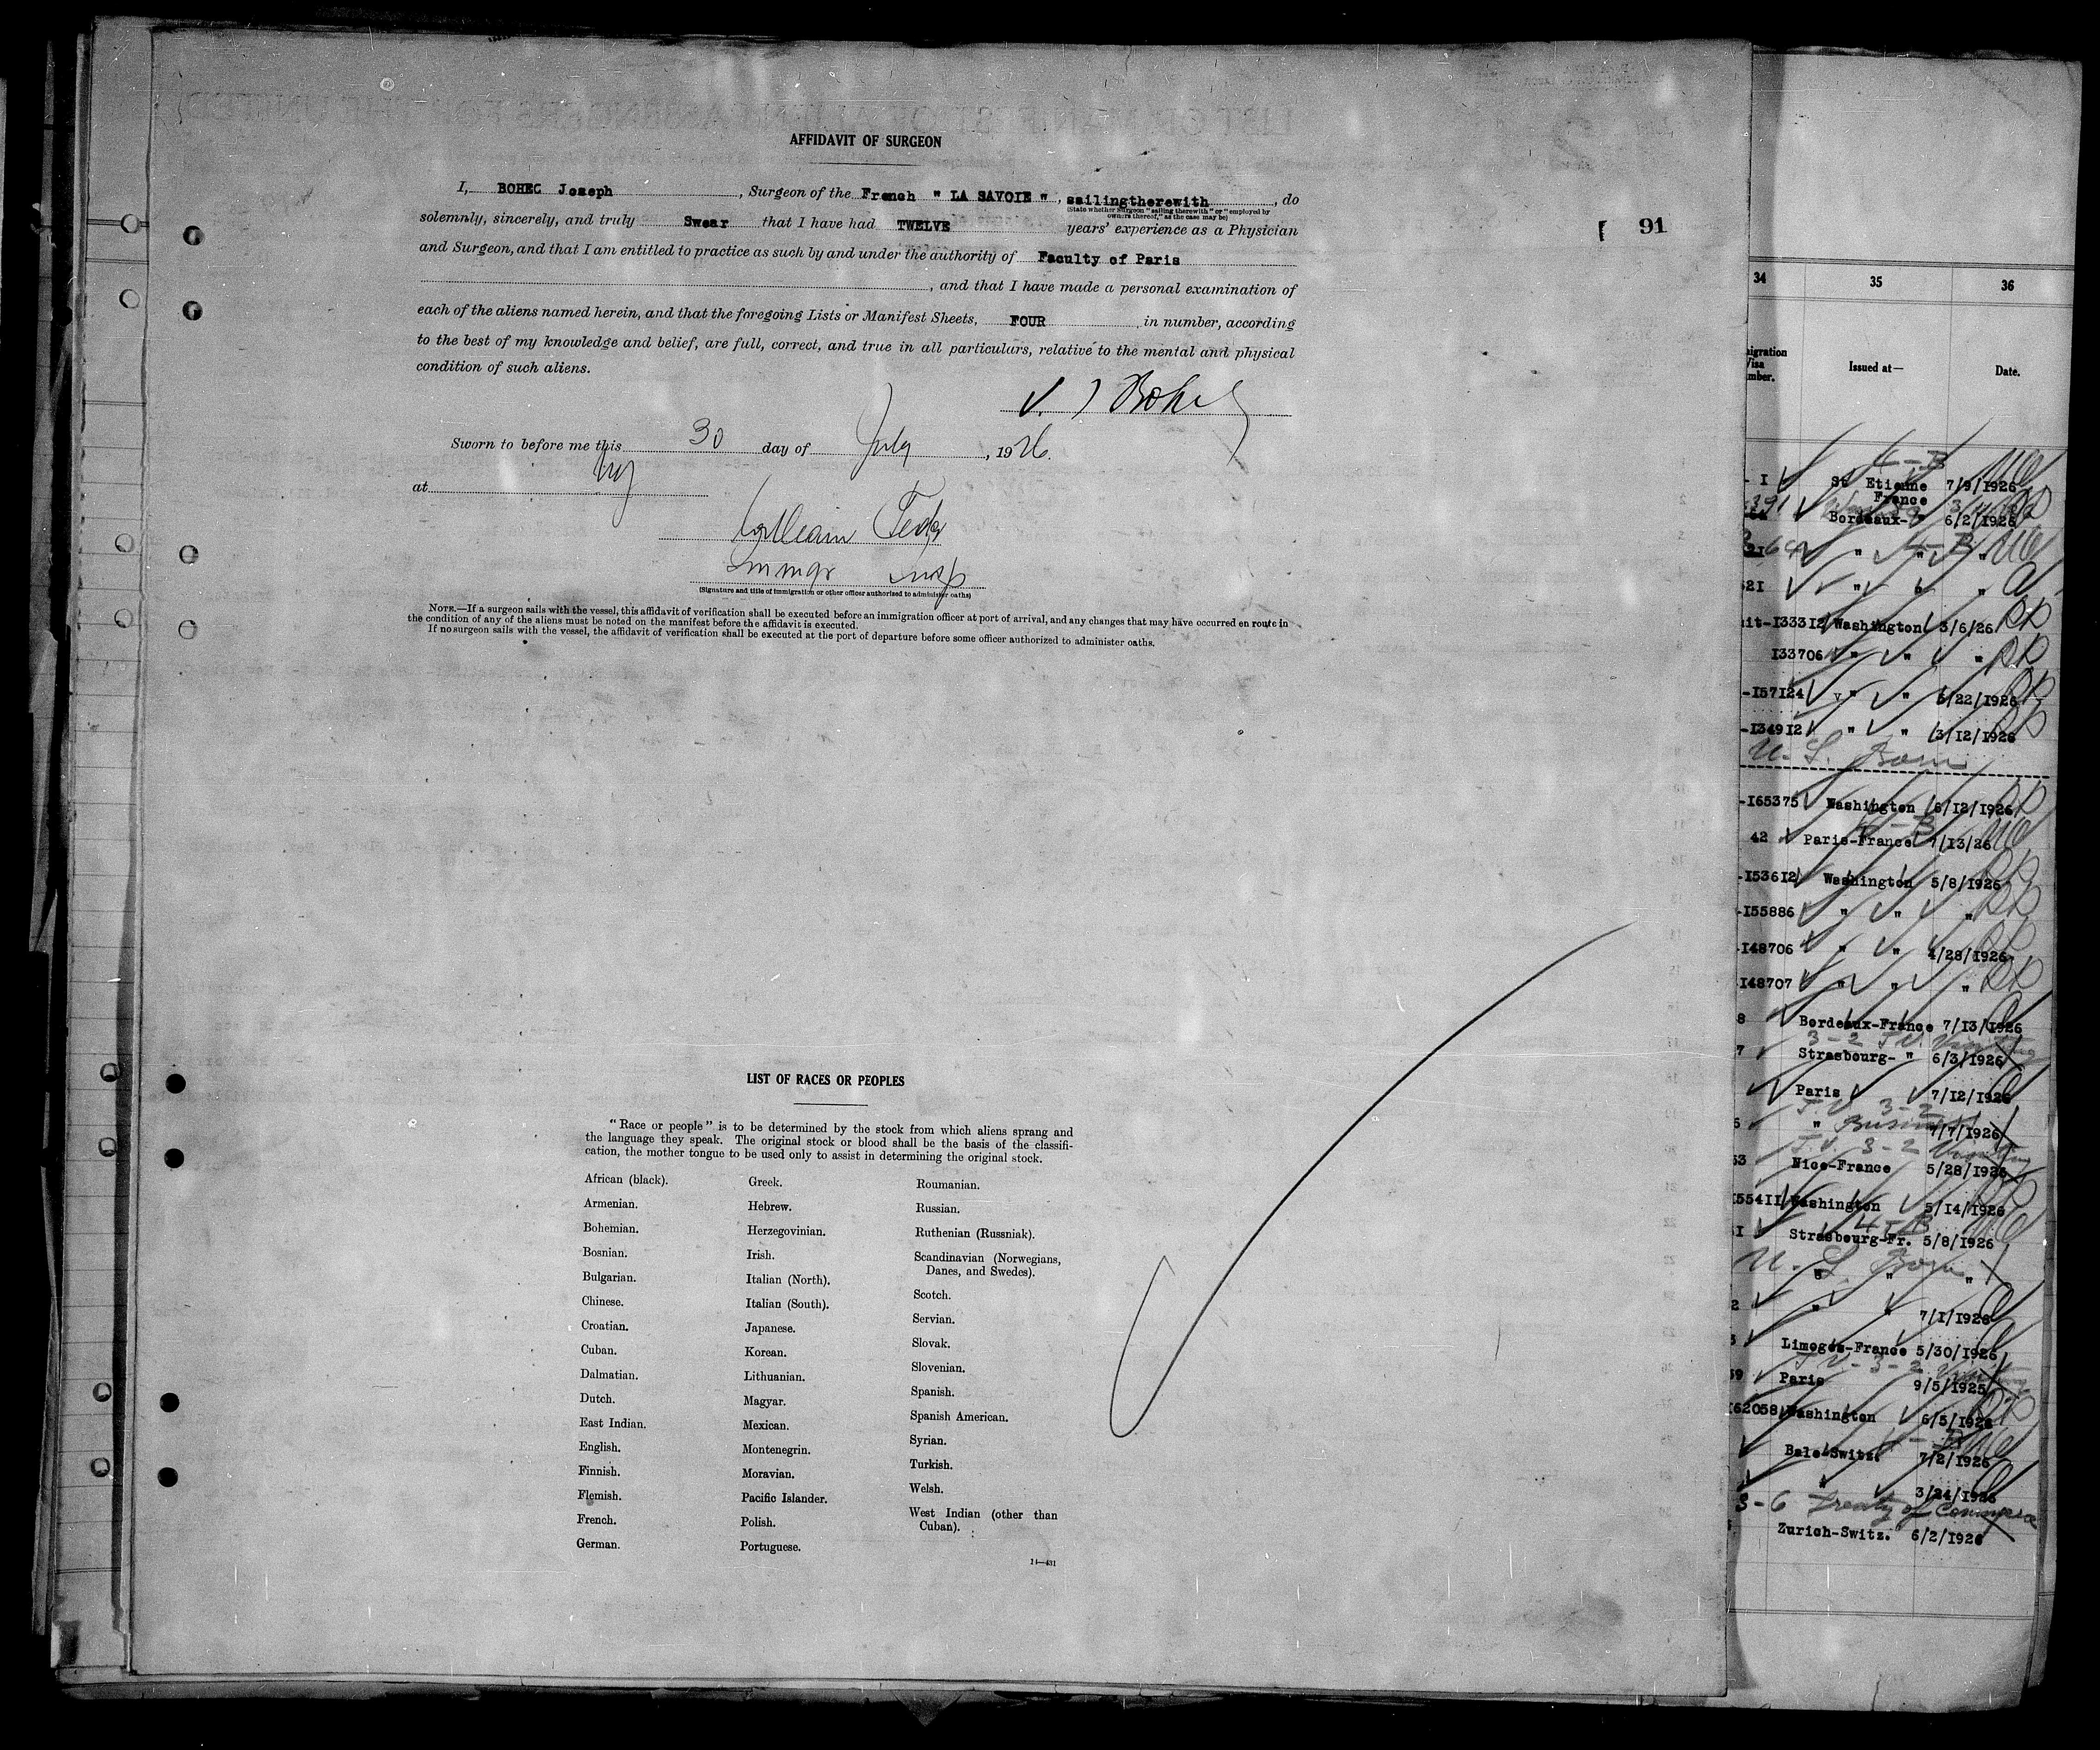 AFFIDAVIT OF SURGEON
I, BOHEC Joseph, Surgeon of the French " LA SAVOIE ", sailingtherewith, do
(State whether Surgeon "sailing therewith" or "employed by
owners thereof," as the case may be)
solemnly, sincerely, and truly Swear that I have had TWELVE years' experience as a Physician
and Surgeon, and that I am entitled to practice as such by and under the authority of Faculty of Paris
, and that I have made a personal examination of
each of the aliens named herein, and that the foregoing Lists or Manifest Sheets, FOUR in number, according
to the best of my knowledge and belief, are full, correct, and true in all particulars, relative to the mental and physical
condition of such aliens.
Bohec
Sworn to before me this 30 day of July, 1926.
at NY
William
Immgr Insp
(Signature and title of immigration or other officer authorized to administer oaths)
NOTE.—If a surgeon sails with the vessel, this affidavit of verification shall be executed before an immigration officer at port of arrival, and any changes that may have occurred en route in
the condition of any of the aliens must be noted on the manifest before the affidavit is executed.
If no surgeon sails with the vessel, the affidavit of verification shall be executed at the port of departure before some officer authorized to administer oaths.
91
LIST OF RACES OR PEOPLES
"Race or people" is to be determined by the stock from which aliens sprang and
the language they speak. The original stock or blood shall be the basis of the classifi-
cation, the mother tongue to be used only to assist in determining the original stock.
African (black).
Armenian.
Bohemian.
Bosnian.
Bulgarian.
Chinese.
Croatian.
Cuban.
Dalmatian.
Dutch.
East Indian.
English.
Finnish.
Flemish.
French.
German.
Greek.
Hebrew.
Herzegovinian.
Irish.
Italian (North).
Italian (South).
Japanese.
Korean.
Lithuanian.
Magyar.
Mexican.
Montenegrin.
Moravian.
Pacific Islander.
Polish.
Portuguese.
Roumanian.
Russian.
Ruthenian (Russniak).
Scandinavian (Norwegians,
Danes, and Swedes).
Scotch.
Servian.
Slovak.
Slovenian.
Spanish.
Spanish American.
Syrian.
Turkish.
Welsh.
West Indian (other than
Cuban).
14—431
34 35 36
Issued at— Date.
4-B
St Etienne 7/9/1926
France
Bordeaux-" 6/2/1926
" " "
21 " " "
133312 Washington 3/6/26
133706 " " "
-157124 " " 5/22/1926
-134912 " " 3/12/1926
U.S. Born
-165375 Washington 6/12/1926
42 Paris-France 7/13/26
-153612 Washington 5/8/1926
-155886 " " "
-148706 " " 4/28/1926
-148707 " " "
8 Bordeaux-France 7/13/1926
3-2 T.V. Visiting
7 Strasbourg- " 6/3/1926
Paris 7/12/1926
T.V. 3-2
" Business 7/7/1926
T.V. 3-2 Visiting
Nice-France 5/28/1926
155411 Washington 5/14/1926
4-B
Strasbourg-Fr. 5/8/1926
U.S. Born
" " "
7/1/1926
Limoges-France 5/30/1926
T.V-3-2 Visiting
Paris 9/5/1925
162058 Washington 6/5/1926
Bale-Switz. 7/2/1926
" 3/24/1926
3-6 Treaty of Commerce
Zurich-Switz. 6/2/1926